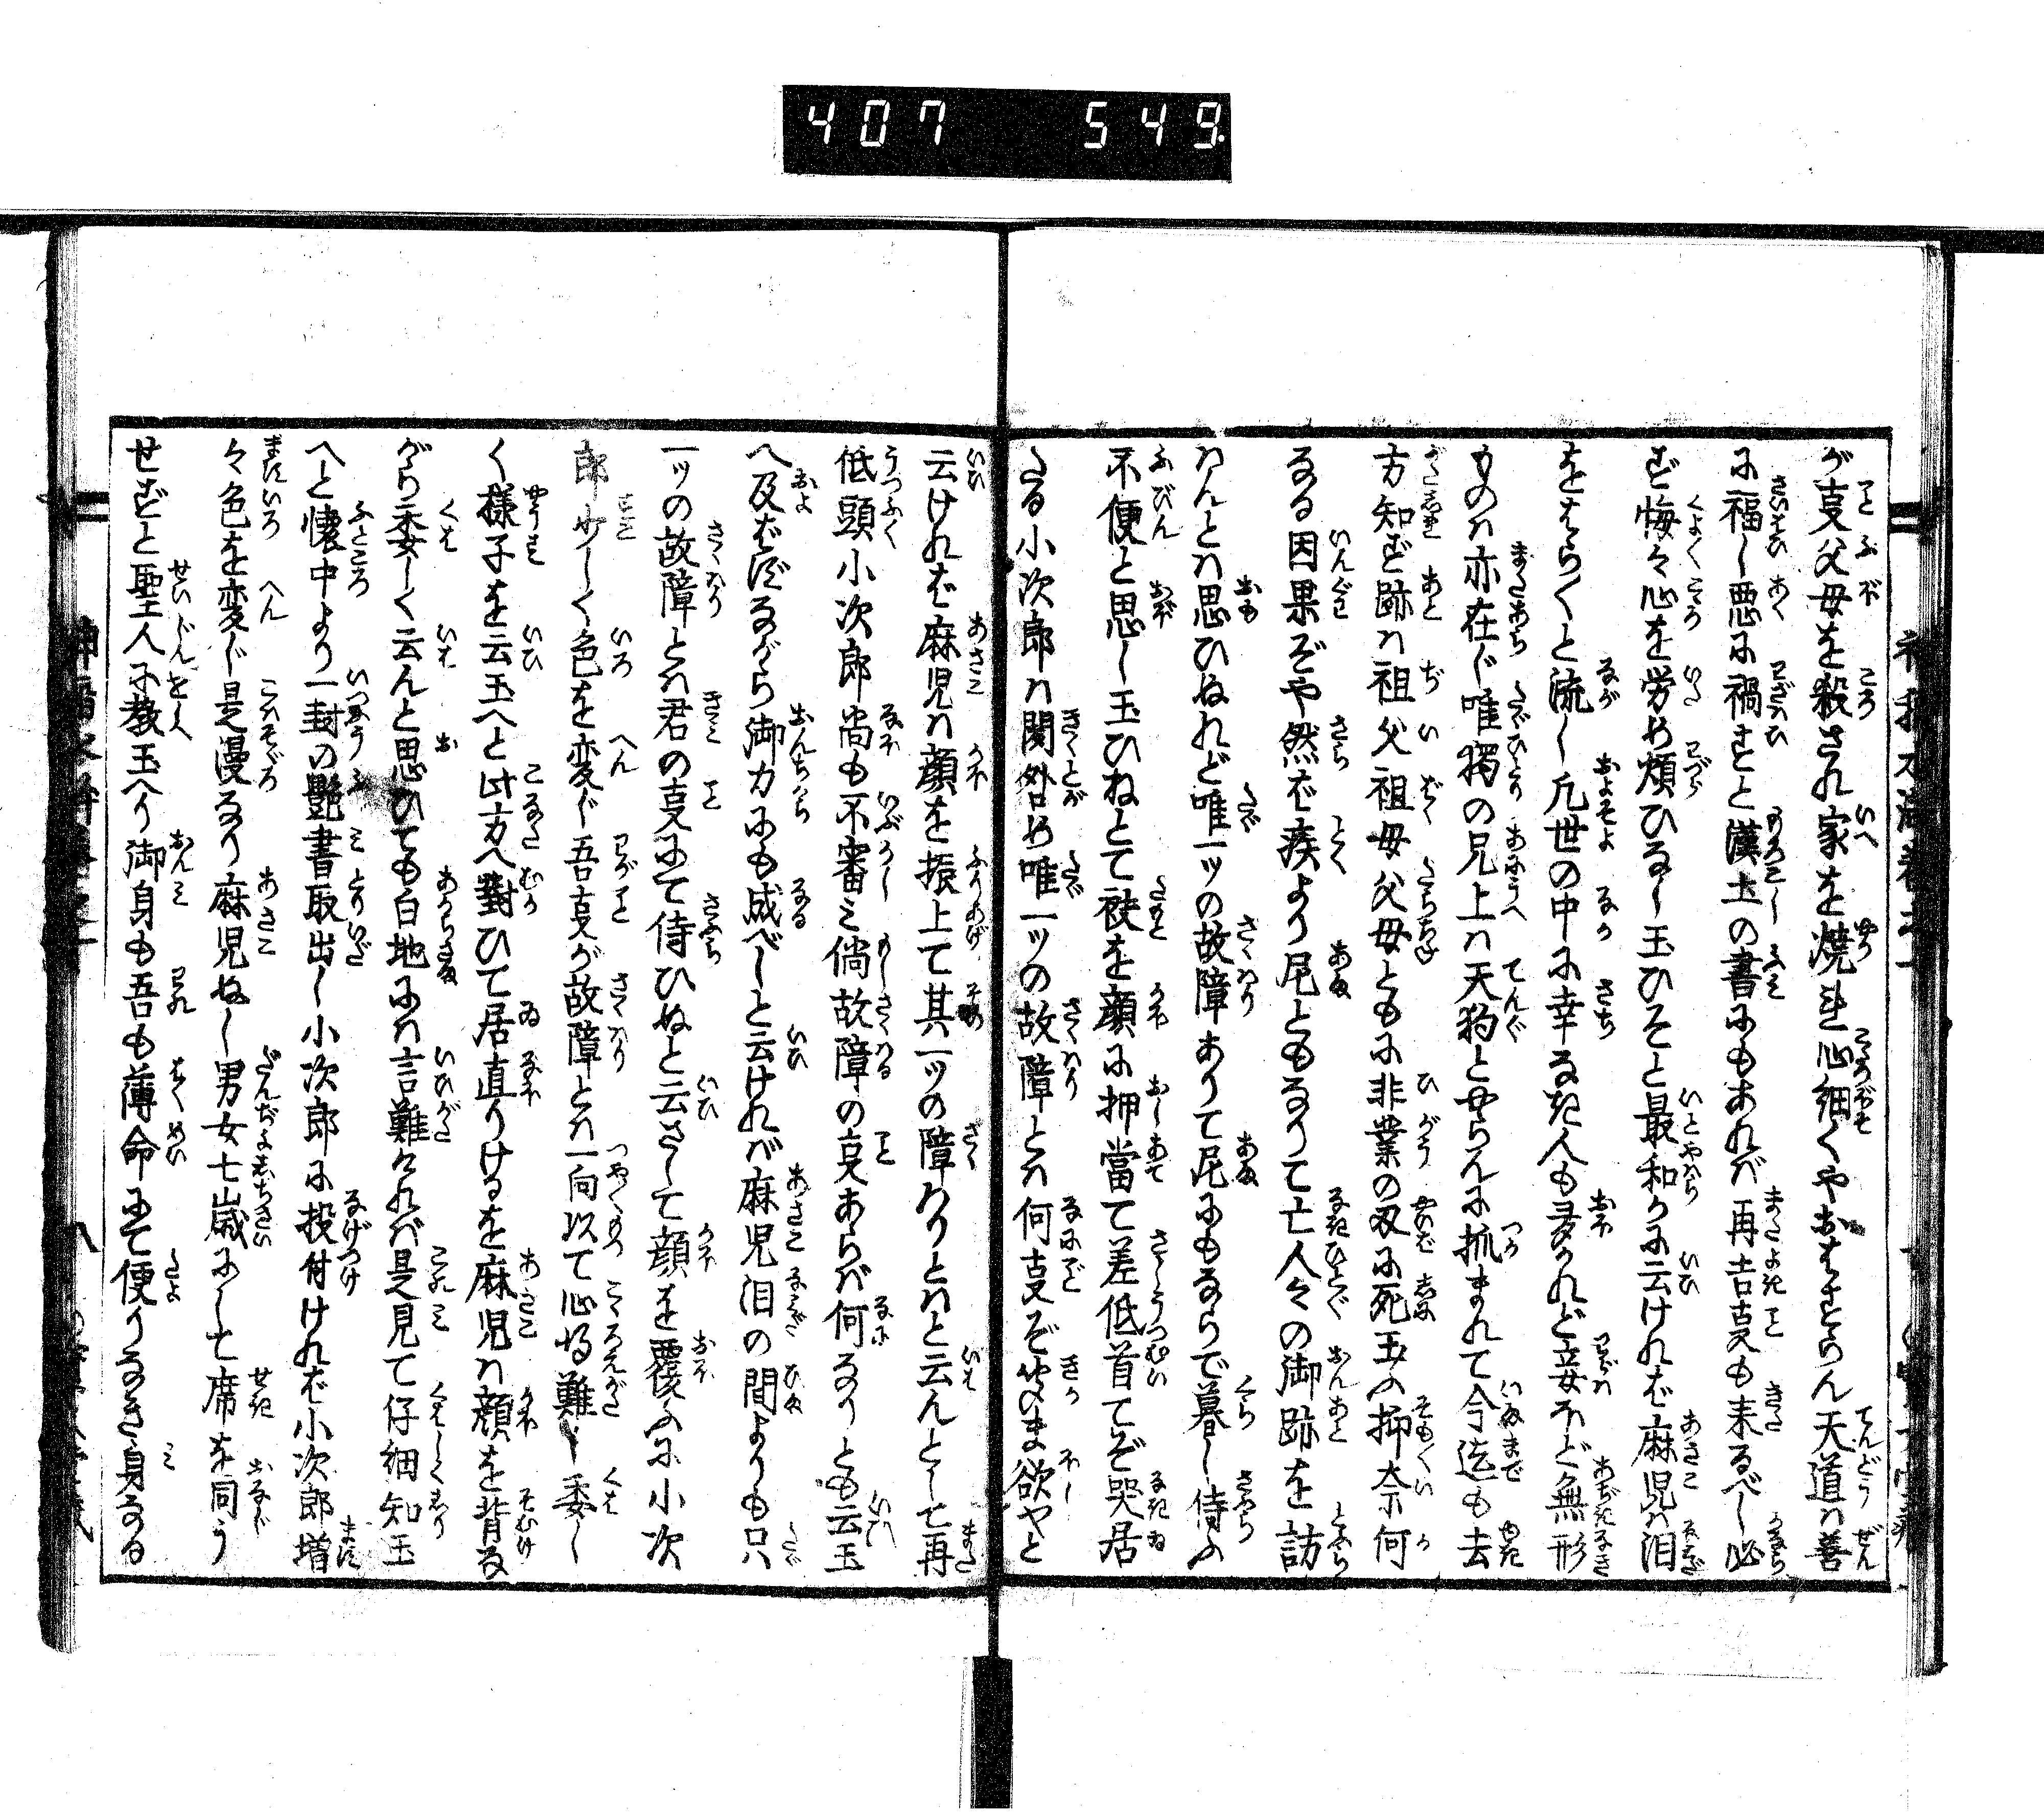 407 549
が叓父母を殺され家を燒れ心細くやおはすらん天道ハ善
に福し悪に禍すと漢土の書にもあれバ再吉叓も来るべし必
ず悔々心を労め煩ひなし玉ひそと最和かに云けれバ麻児ハ泪
をはら〳〵と流し凡世の中に幸なき人も多かれど妾ほど無形
ものハ亦在じ唯獨の兄上ハ天狗とやらんに抓まれて今迄も去
方知ず跡ハ祖父祖母父母ともに非業の刄に死玉ふ抑奈何
なる因果ぞや然ば疾より尼ともなりて亡人々の御跡を訪
ハんとハ思ひぬれど唯一ッの故障ありて尼にもならで暮し侍ふ
不便と思し玉ひねとて袂を顔に押當て差低首てぞ哭居
たる小次郎ハ聞咎め唯一ッの故障とハ何叓ぞ欤ま欲やと
云けれバ麻児ハ顔を振上て其一ッの障りとハと云んとして再
低頭小次郎尚も不審み倘故障の叓あらバ何なりとも云玉
へ及ばずながら御力にも成べしと云けれバ麻児泪の間よりも只
一ッの故障とハ君の叓にて侍ひぬと云さして顔を覆ふに小次
郎少しく色を変じ吾叓が故障とハ一向以て心得難し委し
く様子を云玉へと此方へ對ひて居直りけるを麻児ハ顔を背な
がら委しく云んと思ひても白地にハ言難けれバ是見て仔細知玉
へと懐中より一封の艶書取出し小次郎に投付けれバ小次郎増
々色を変じ是漫なり麻児ぬし男女七歳にして席を同う
せずと聖人に教玉へり御身も吾も薄命にて便りなき身なる
八